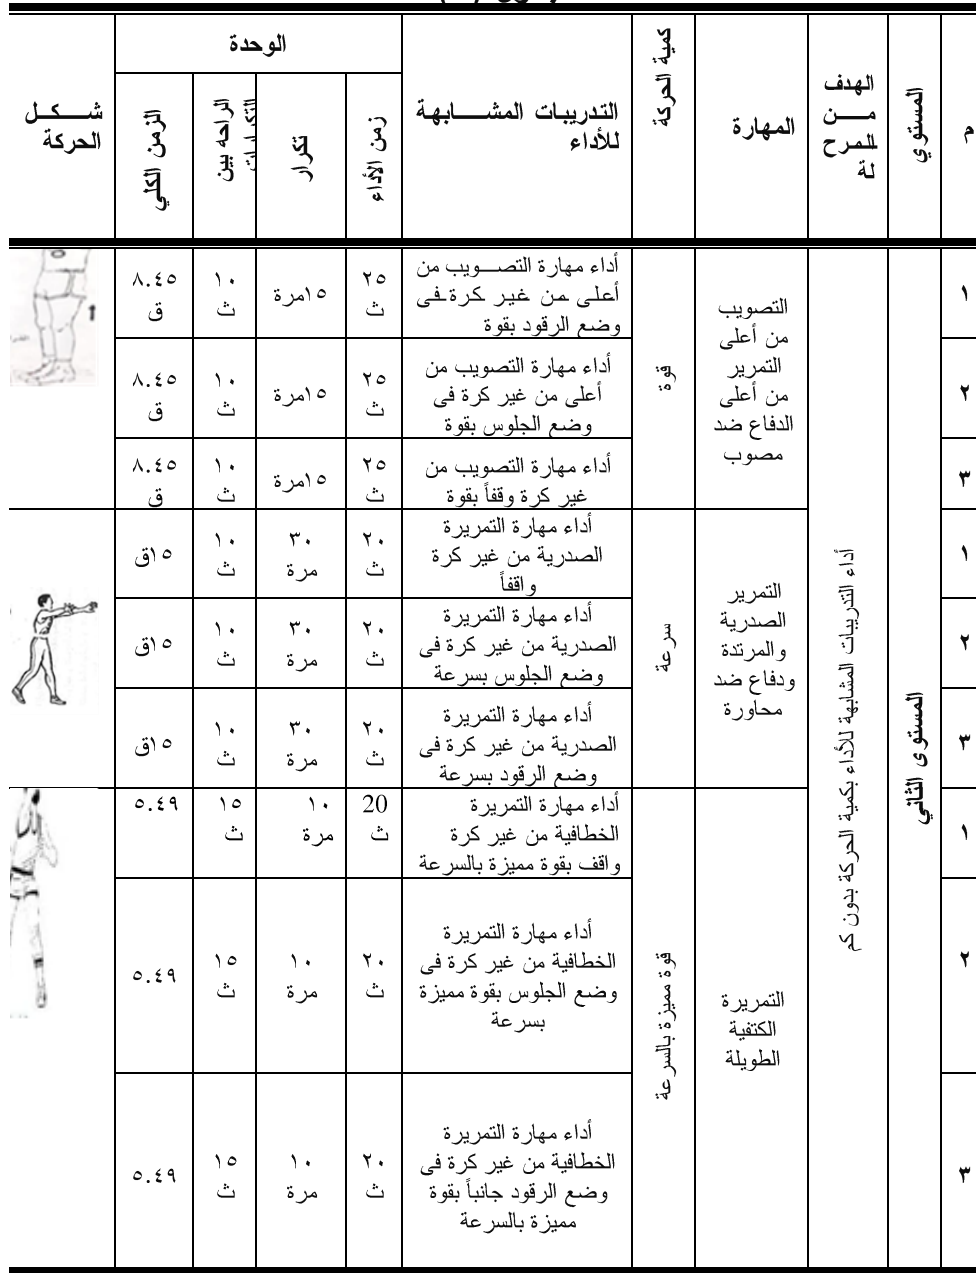 م
المستوي
الهدف
مـــن
المرح
لة
المهارة
كمية الحركة
التدريبات المشـــابهة
للأداء
الوحدة
زمن الأداء
تكرار
الراحه بين
الزمن الكلي
شـــكـــل
الحركة
المستوى الثاني
أداء التدريبات المشابهة للأداء بكمية الحركة بدون كم
١
التصويب
من أعلى
التمرير
من أعلى
الدفاع ضد
مصوب
قوة
أداء مهارة التصـــويب من
أعلى من غير كرة فى
وضع الرقود بقوة
٢٥
ث
١٥مرة
١٠
ث
٨.٤٥
ق
٢
أداء مهارة التصويب من
أعلى من غير كرة فى
وضع الجلوس بقوة
٢٥
ث
١٥مرة
١٠
ث
٨.٤٥
ق
٣
أداء مهارة التصويب من
غير كرة وقفاً بقوة
٢٥
ث
١٥مرة
١٠
ث
٨.٤٥
ق
١
التمرير
الصدرية
والمرتدة
ودفاع ضد
محاورة
سرعة
أداء مهارة التمريرة
الصدرية من غير كرة
واقفاً
٢٠
ث
٣٠
مرة
١٠
ث
١٥ق
٢
أداء مهارة التمريرة
الصدرية من غير كرة فى
وضع الجلوس بسرعة
٢٠
ث
٣٠
مرة
١٠
ث
١٥ق
٣
أداء مهارة التمريرة
الصدرية من غير كرة فى
وضع الرقود بسرعة
٢٠
ث
٣٠
مرة
١٠
ث
١٥ق
١
التمريرة
الكتفية
الطويلة
قوة مميزة بالسرعة
أداء مهارة التمريرة
الخطافية من غير كرة
واقف بقوة مميزة بالسرعة
20
ث
١٠
مرة
١٥
ث
٥.٤٩
٢
أداء مهارة التمريرة
الخطافية من غير كرة فى
وضع الجلوس بقوة مميزة
بسرعة
٢٠
ث
١٠
مرة
١٥
ث
٥.٤٩
٣
أداء مهارة التمريرة
الخطافية من غير كرة فى
وضع الرقود جانباً بقوة
مميزة بالسرعة
٢٠
ث
١٠
مرة
١٥
ث
٥.٤٩